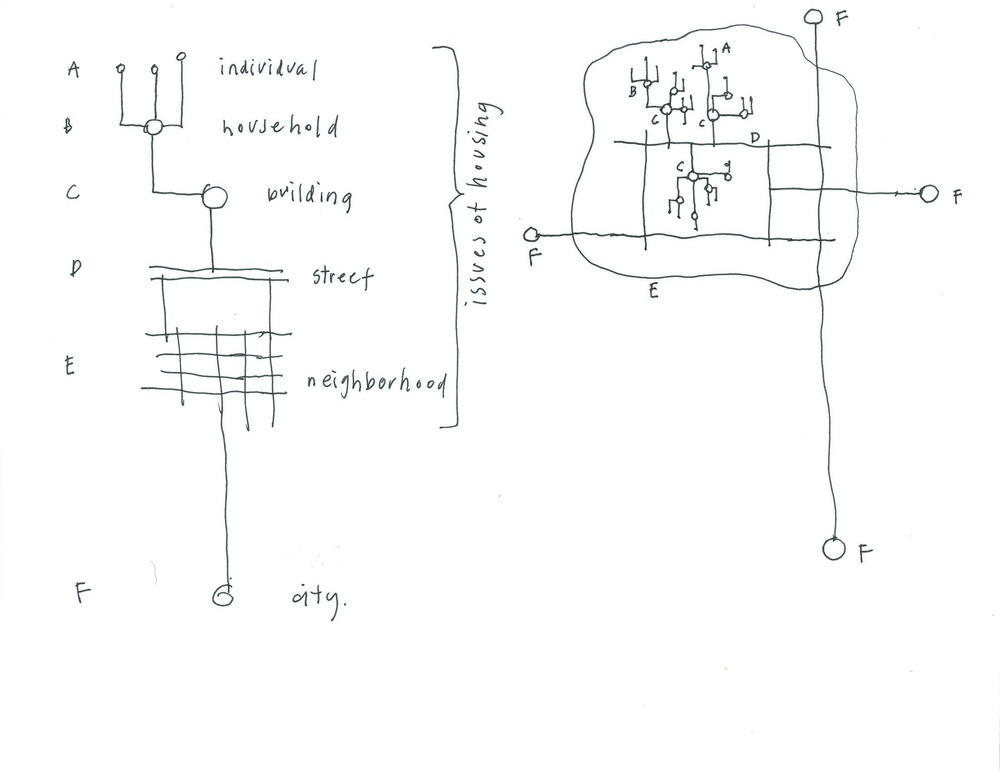 A individual
B household
C building
D street
E neighborhood
F city.
issues of housing
F
A
B
C
C
D
C
F
F
E
F